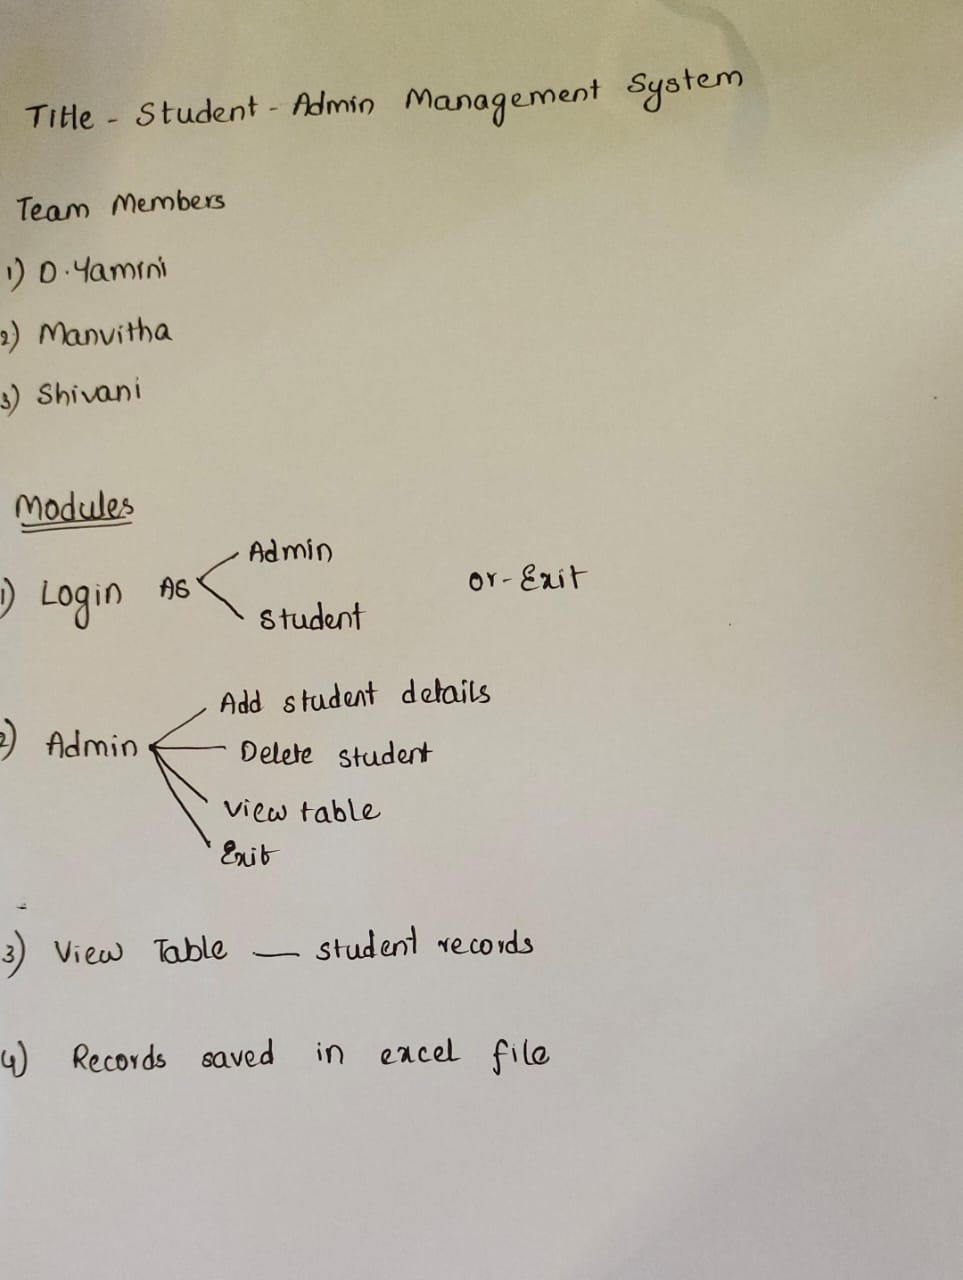 Title - Student - Admin Management System
Team Members
1) D.Yamini
2) Manvitha
3) Shivani
Modules
1) Login As Admin
Student
or - Exit
2) Admin
Add student details
Delete student
view table
Exit
3) View Table — student records
4) Records saved in excel file